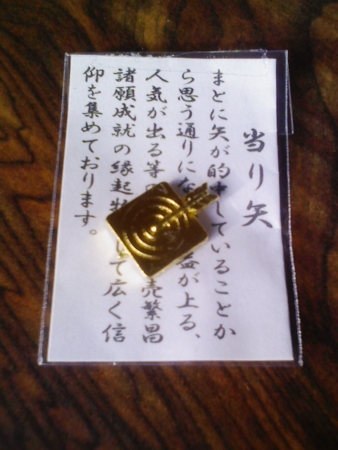 当り矢
まとに矢が的中していることか
ら思う通りにな 益が上る、
人気が出る等の 売繁昌
諸願成就の縁起物 して広く信
仰を集めております。